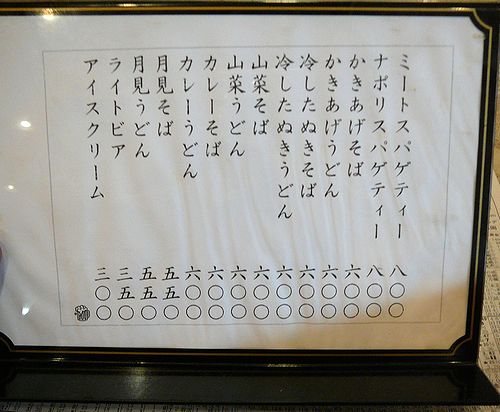 ミートスパゲティー 八〇〇
ナポリスパゲティー 八〇〇
かきあげそば 六〇〇
かきあげうどん 六〇〇
冷したぬきそば 六〇〇
冷したぬきうどん 六〇〇
山菜そば 六〇〇
山菜うどん 六〇〇
カレーそば 六〇〇
カレーうどん 六〇〇
月見そば 五五〇
月見うどん 五五〇
ライトビア 三五〇
アイスクリーム 三〇〇